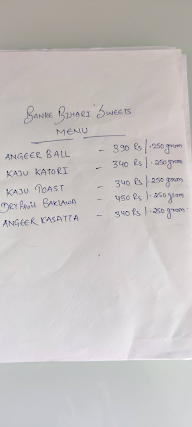 BANKE BIHARI SWEETS
MENU
ANGEER BALL - 390 Rs/.250gram
KAJU KATORI - 340 Rs/.250gram
KAJU ROAST - 340 Rs/.250gram
DRYFRUIT BAKLAWA - 450 Rs/.250gram
ANGEER KASATTA - 340 Rs/.250gram